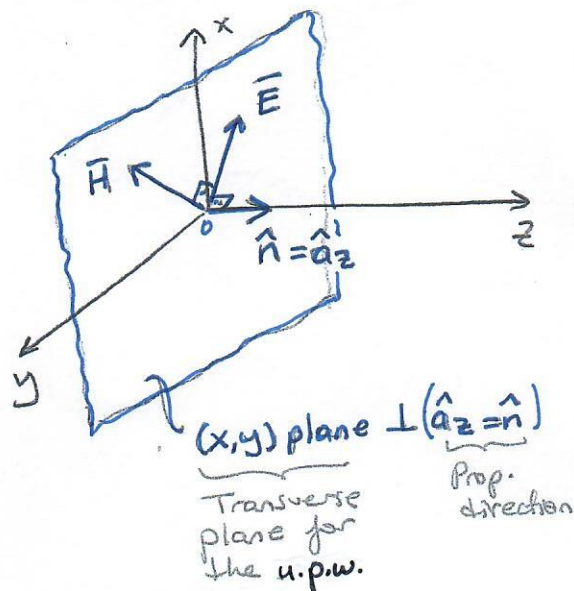 x
E̅
H̅
0
n̂ = âz
z
y
(x,y) plane ⊥ (âz = n̂)
Transverse
plane for
the u.p.w.
Prop.
direction